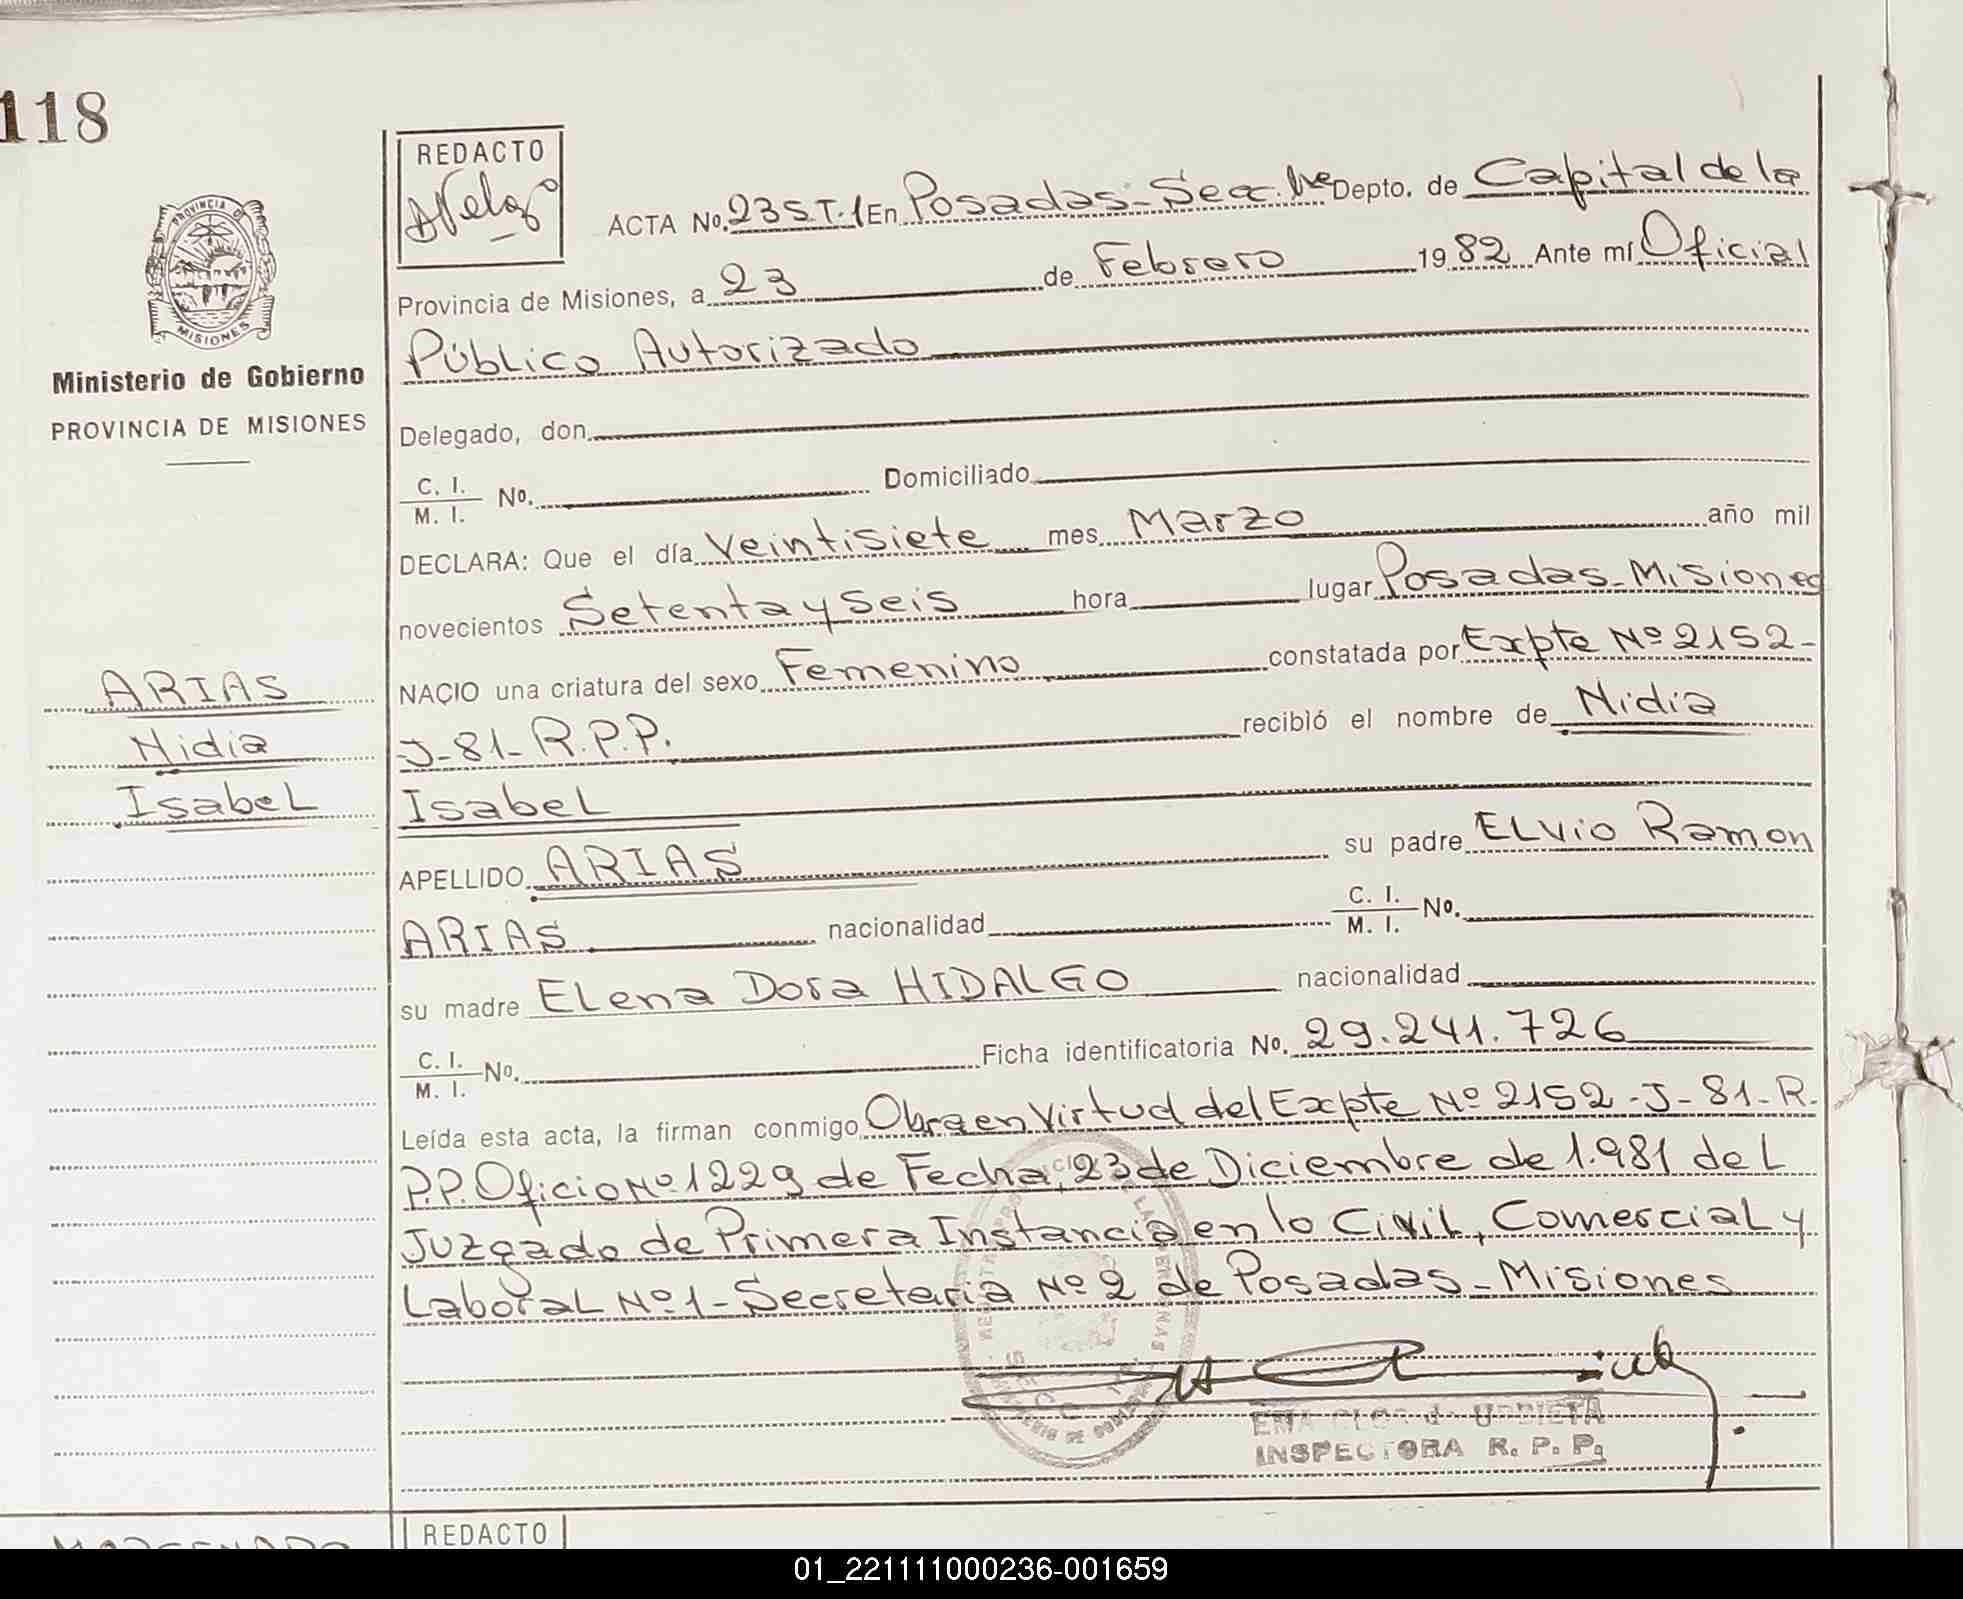 118
REDACTO
ACTA No. 235 T.1 En Posadas-Secc. 1re Depto. de Capital de la
Provincia de Misiones, a 23 de Febrero 1982 Ante mí Oficial
Público Autorizado
PROVINCIA DE
MISIONES
Ministerio de Gobierno
PROVINCIA DE MISIONES
Delegado, don
C. I.
M. I. No. Domiciliado
DECLARA: Que el día Veintisiete mes Marzo año mil
novecientos Setenta y Seis hora lugar Posadas-Misiones
NACIO una criatura del sexo Femenino constatada por Expte Nº 2152-
J-81-R.P.P. recibió el nombre de Nidia
Isabel
ARIAS
Nidia
Isabel
APELLIDO ARIAS su padre ELvio Ramon
ARIAS nacionalidad C. I.
M. I. No.
su madre ELena Dora HIDALGO nacionalidad
C. I.
M. I. No. Ficha identificatoria No. 29.241.726
Leída esta acta, la firman conmigo Obra en Virtud del Expte Nº 2152-J-81-R.
P.P. Oficio Nº 1229 de Fecha, 23 de Diciembre de 1.981 deL
Juzgado de Primera Instancia en lo CiviL, ComerciaL y
LaboraL Nº 1-Secretaria Nº 2 de Posadas-Misiones
INSPECTORA R. P. P.
REDACTO
01_221111000236-001659